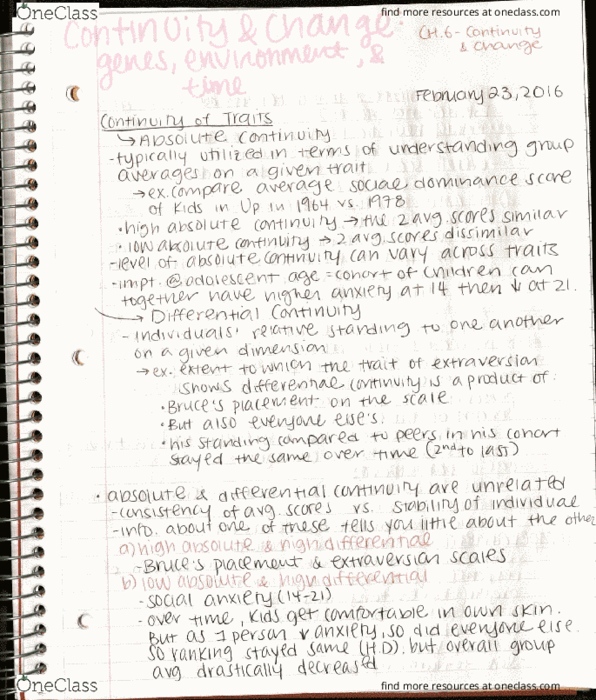 OneClass
find more resources at oneclass.com
Continuity & Change:
genes, environment, &
time
CH.6- Continuity
& Change
February 23, 2016
Continuity of Traits
↳ Absolute Continuity
-typically utilized in terms of understanding group
averages on a given trait
→ex. compare average social dominance score
of kids in Up in 1964 vs. 1978
•high absolute continuity → the 2 avg. scores similar
•low absolute continuity → 2 avg. scores dissimilar
-level of absolute continuity can vary across traits
-impt. @adolescent age = cohort of children can
together have higher anxiety at 14 then ↓ at 21.
→ Differential Continuity
- individuals' relative standing to one another
on a given dimension
→ex. extent to which the trait of extraversion
shows differential continuity is a product of:
•Bruce's placement on the scale
•But also everyone else's.
•his standing compared to peers in his cohort
stayed the same over time (2nd to last)
• absolute & differential continuity are unrelated
-consistency of avg. scores vs. stability of individual
-info. about one of these tells you little about the other
a) high absolute & high differential
-Bruce's placement & extraversion scales
b) low absolute & high differential
-social anxiety (14-21)
-over time, kids get comfortable in own skin.
But as 1 person ↓ anxiety, so did everyone else.
so ranking stayed same (H.D). but overall group
avg drastically decreased
OneClass
find more resources at oneclass.com